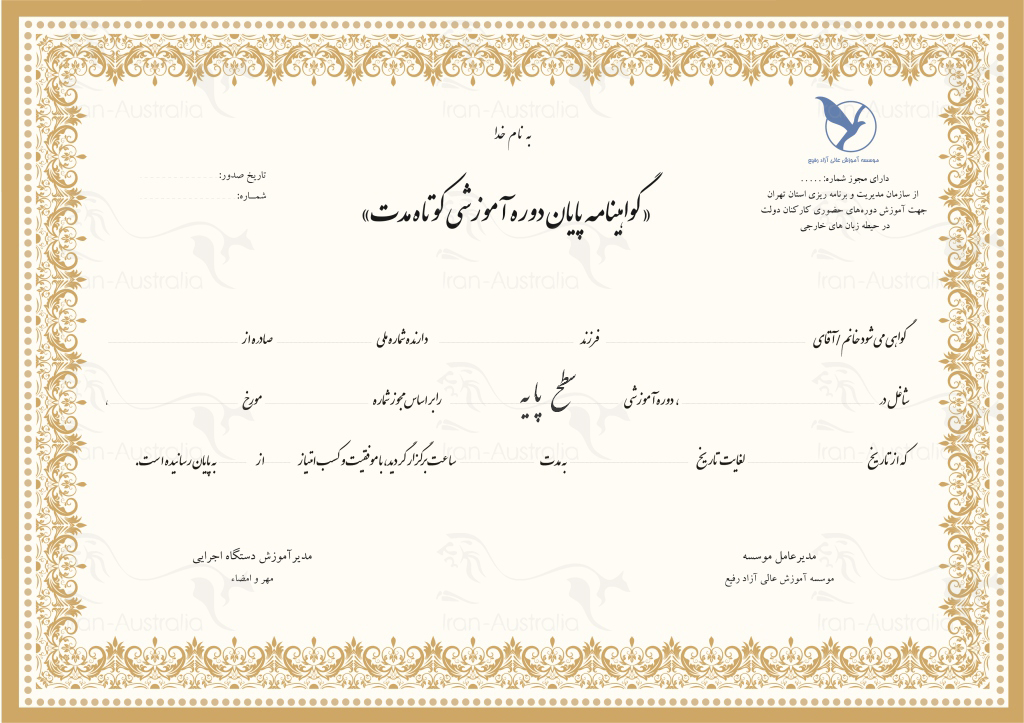 به نام خدا
موسسه آموزش عالی آزاد رفیع
دارای مجوز شماره: .....
از سازمان مدیریت و برنامه ریزی استان تهران
جهت آموزش دوره‌های حضوری کارکنان دولت
در حیطه زبان های خارجی
تاریخ صدور:
شماره:
«گواهینامه پایان دوره آموزشی کوتاه مدت»
گواهی می شود خانم / آقای فرزند دارنده شماره ملی صادره از
شاغل در ، دوره آموزشی سطح پایه را بر اساس مجوز شماره مورخ ،
که از تاریخ لغایت تاریخ به مدت ساعت برگزار گردید، با موفقیت و کسب امتیاز از به پایان رسانیده است.
مدیرعامل موسسه
موسسه آموزش عالی آزاد رفیع
مدیرآموزش دستگاه اجرایی
مهر و امضاء
Iran-Australia